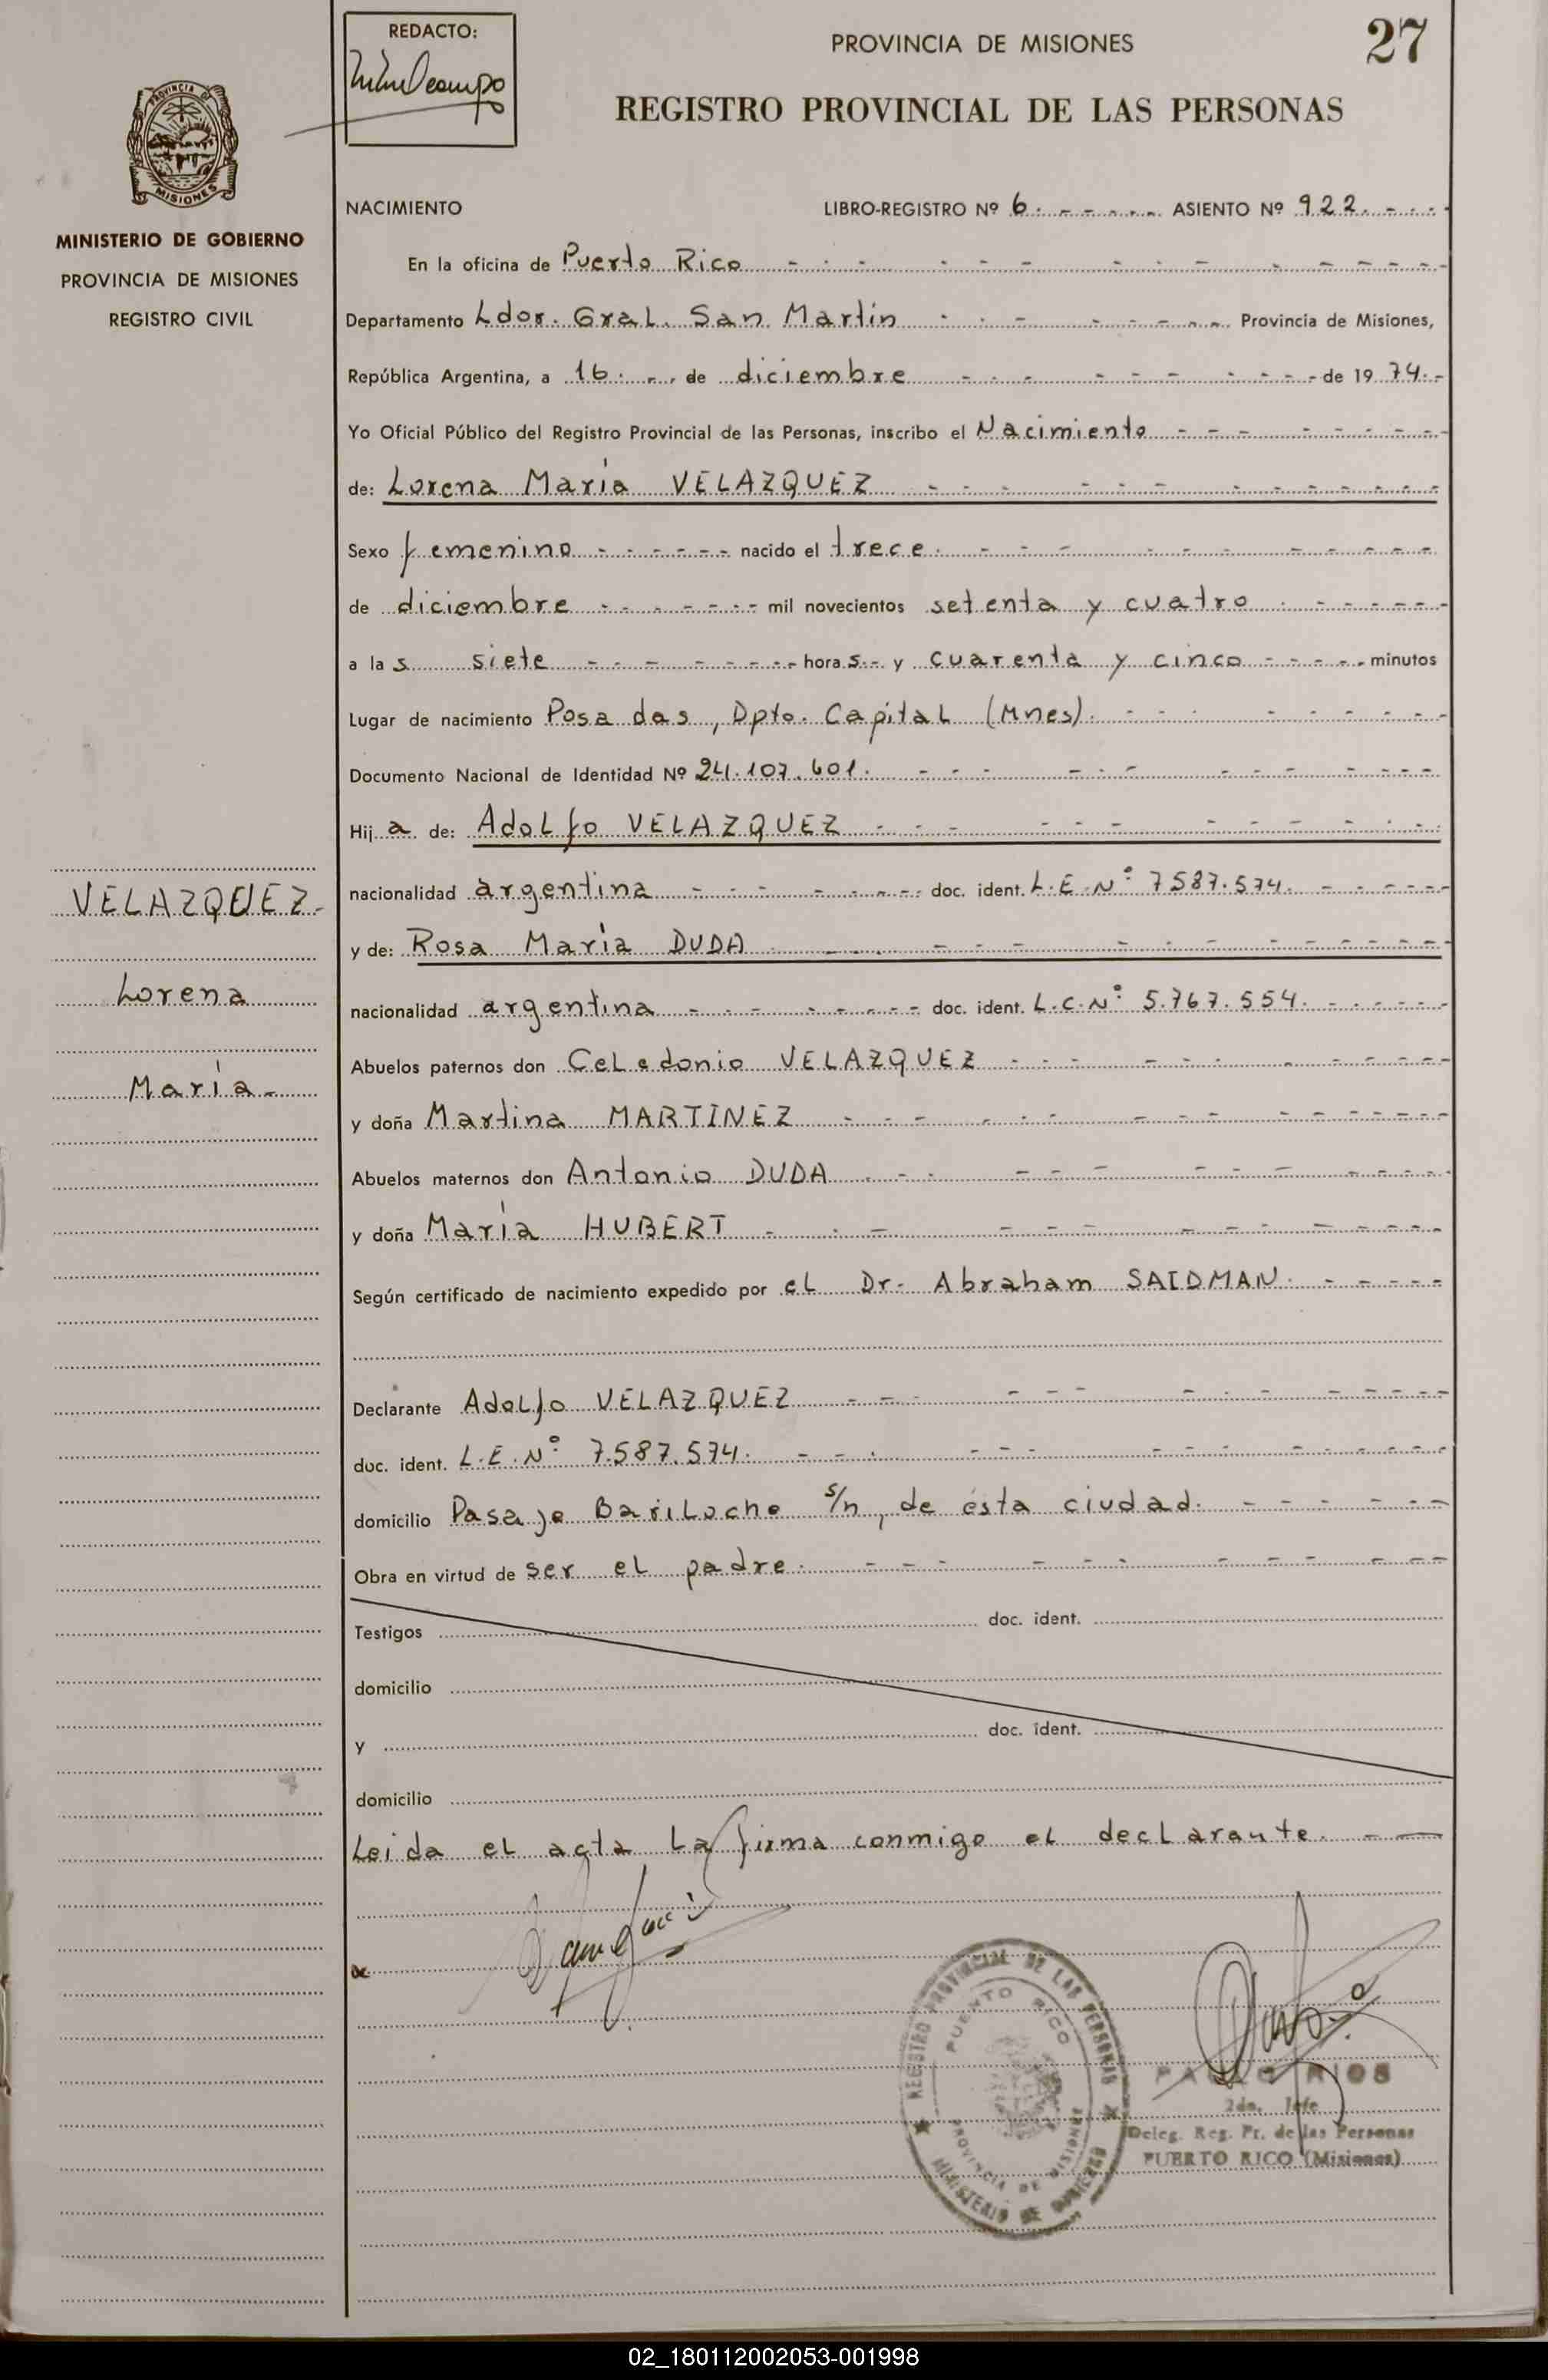 REDACTO:
PROVINCIA DE MISIONES
27
REGISTRO PROVINCIAL DE LAS PERSONAS
PROVINCIA DE
MISIONES
MINISTERIO DE GOBIERNO
PROVINCIA DE MISIONES
REGISTRO CIVIL
NACIMIENTO LIBRO-REGISTRO Nº 6. ASIENTO Nº 922.
En la oficina de Puerto Rico
Departamento Ldor. Gral. San Martín Provincia de Misiones,
República Argentina, a 16. de diciembre de 1974.
Yo Oficial Público del Registro Provincial de las Personas, inscribo el Nacimiento
de: Lorena María VELAZQUEZ
Sexo femenino nacido el trece.
de diciembre mil novecientos setenta y cuatro
a las siete horas. y cuarenta y cinco minutos
Lugar de nacimiento Posadas, Dpto. Capital (Mnes).
Documento Nacional de Identidad Nº 24.107.601.
Hija de: Adolfo VELAZQUEZ
nacionalidad argentina doc. ident. L.E.Nº 7587.574.
y de: Rosa María DUDA
nacionalidad argentina doc. ident. L.C.Nº 5.767.554.
Abuelos paternos don Celedonio VELAZQUEZ
y doña Martina MARTÍNEZ
Abuelos maternos don Antonio DUDA
y doña María HUBERT
Según certificado de nacimiento expedido por el Dr. Abraham SAIDMAN.
Declarante Adolfo VELAZQUEZ
doc. ident. L.E.Nº 7.587.574.
domicilio Pasaje Bariloche s/n, de ésta ciudad.
Obra en virtud de ser el padre.
Testigos doc. ident.
domicilio
y doc. ident.
domicilio
Leida el acta la firma conmigo el declarante.
VELAZQUEZ
Lorena
María
REGISTRO PROVINCIAL DE LAS PERSONAS
PUERTO RICO
PROVINCIA DE MISIONES
MINISTERIO DE GOBIERNO
RIOS
2do. Jefe
Deleg. Reg. Pr. de las Personas
PUERTO RICO (Misiones)
02_180112002053-001998